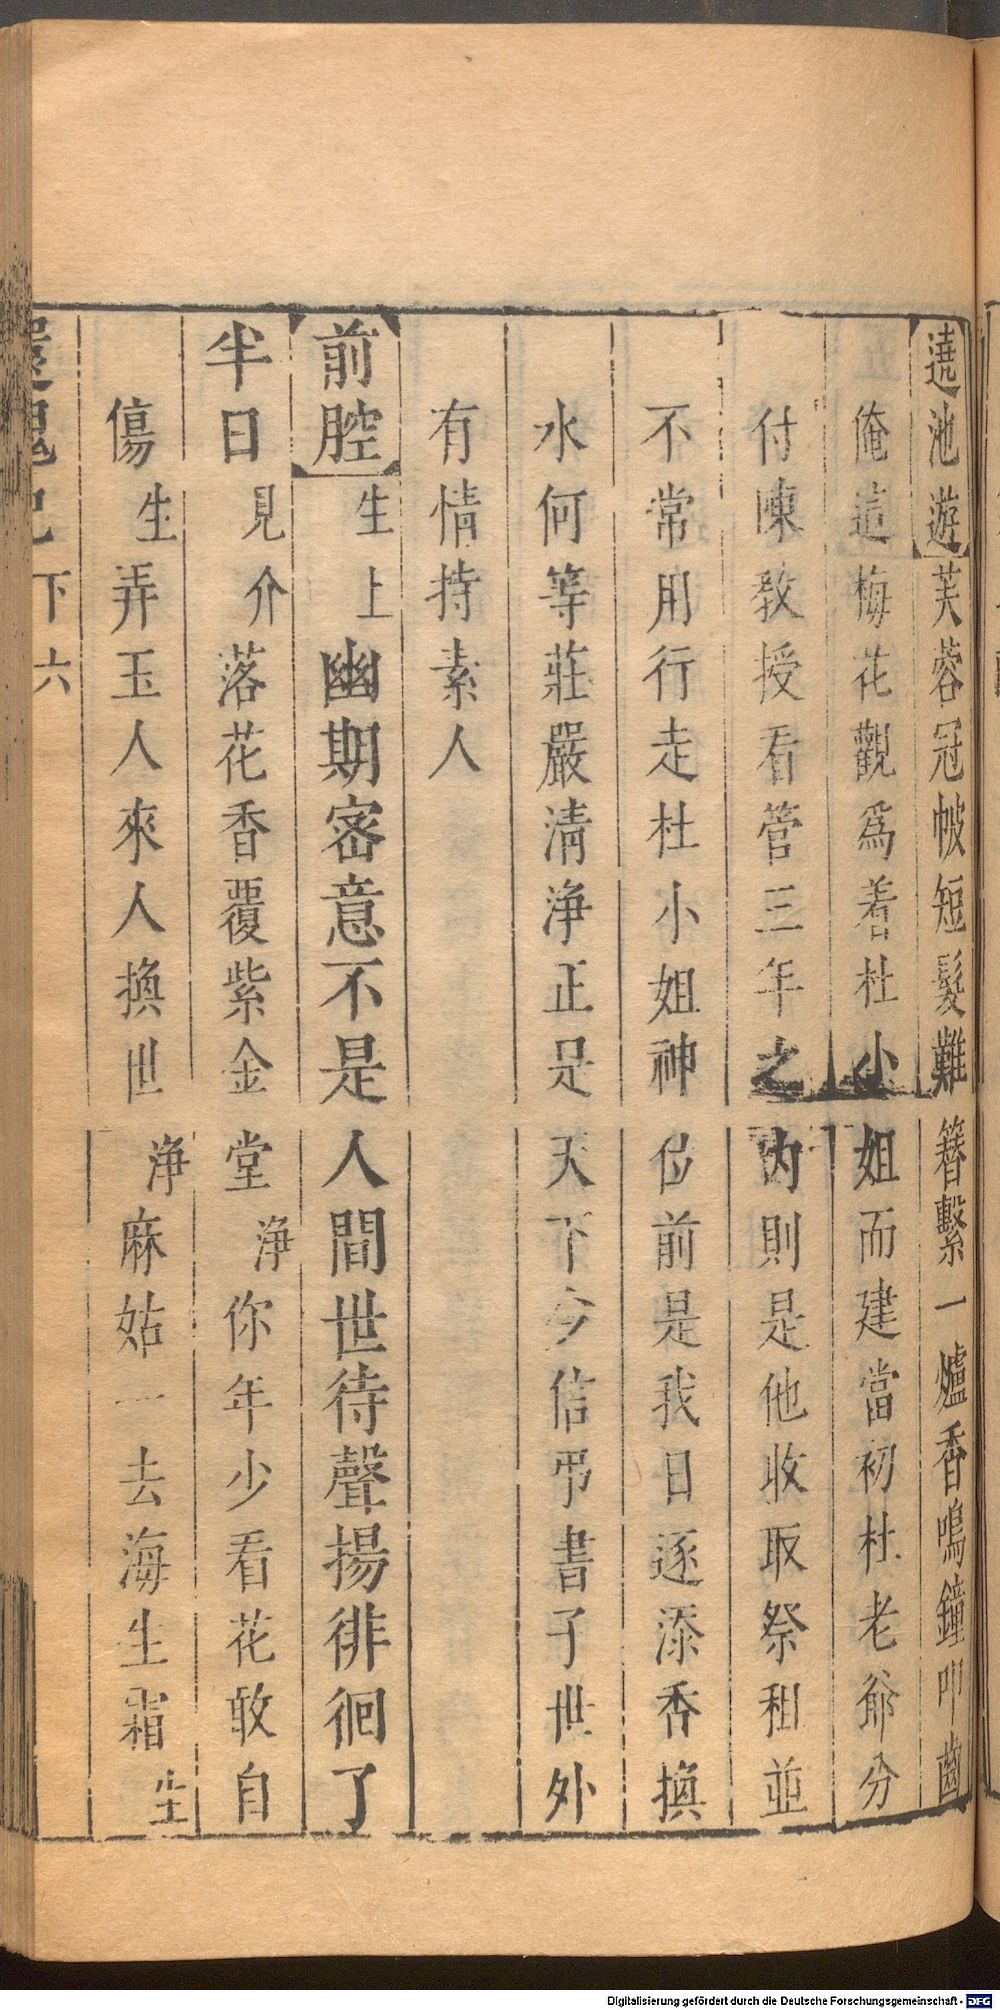 遶池遊芙蓉冠帔短髮難簪繫一爐香鳴鐘叩齒
俺這梅花觀爲着杜小姐而建當初杜老爺分
付陳教授看管三年之内則是他收取祭租並
不常用行走杜小姐神位前是我日逐添香換
水何等莊嚴清淨正是天下今信弔書子世外
有情持素人
前腔生上幽期密意不是人間世待聲揚徘徊了
半日見介落花香覆紫金堂淨你年少看花敢自
傷生弄玉人來人換世淨麻姑一去海生霜生
還魂記 下 六
Digitalisierung gefördert durch die Deutsche Forschungsgemeinschaft - DFG